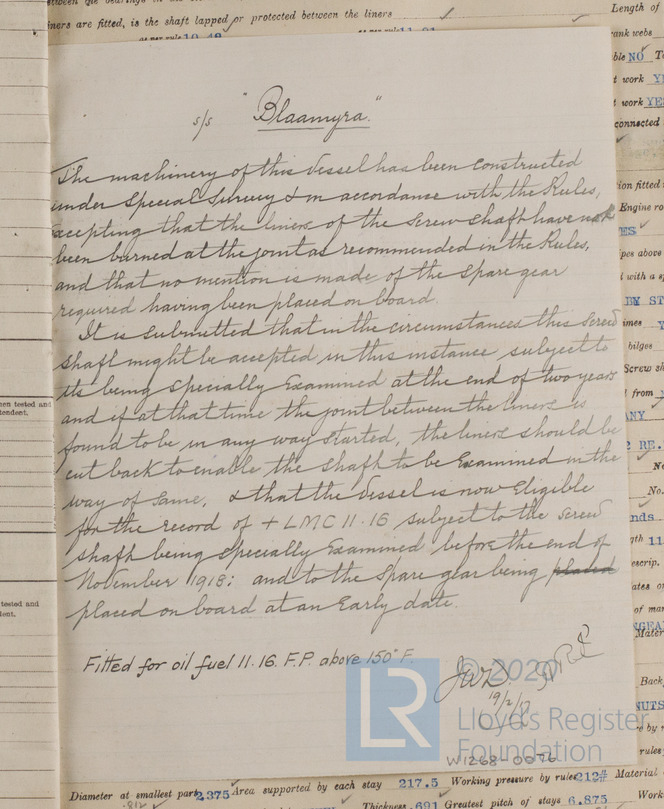 iners are fitted, is the shaft lapped or protected between the liners
Length of
rank webs
s/s "Blaamyra."
The machinery of this vessel has been constructed
under Special Survey & in accordance with the Rules,
excepting that the liners of the screw shaft have not
been burned at the joint as recommended in the Rules,
and that no mention is made of the spare gear
required having been placed on board.
It is submitted that in the circumstances this screw
shaft might be accepted in this instance subject to
its being specially Examined at the end of two years
and if at that time the joint between the liners is
found to be in any way started, the liners should be
cut back to enable the shaft to be Examined in the
way of same, & that the vessel is now Eligible
for the record of + LMC 11.16 subject to the screw
shaft being specially Examined before the end of
November 1918: and to the spare gear being placed
placed on board at an Early date.
Fitted for oil fuel 11.16. F.P. above 150° F.
19/2/17
© 2020
LR
Lloyd's Register
Foundation
W1268-0076
ble NO
t work YES
t work YES
connected
ion fitted
Engine ro
YES
ipes above
with a s
BY ST
imes
bilges
Screw sh
from
ANY
2 RE.
No
No.
nds
gth 11
escrip.
ates or
of ma
NGEA
Mater
Back
NUTS
re by r
rules
een tested and
tendent.
tested and
dent.
Diameter at smallest part 2.375 Area supported by each stay 217.5 Working pressure by rules 212# Material
Thickness .691 Greatest pitch of stays 6.875 Work